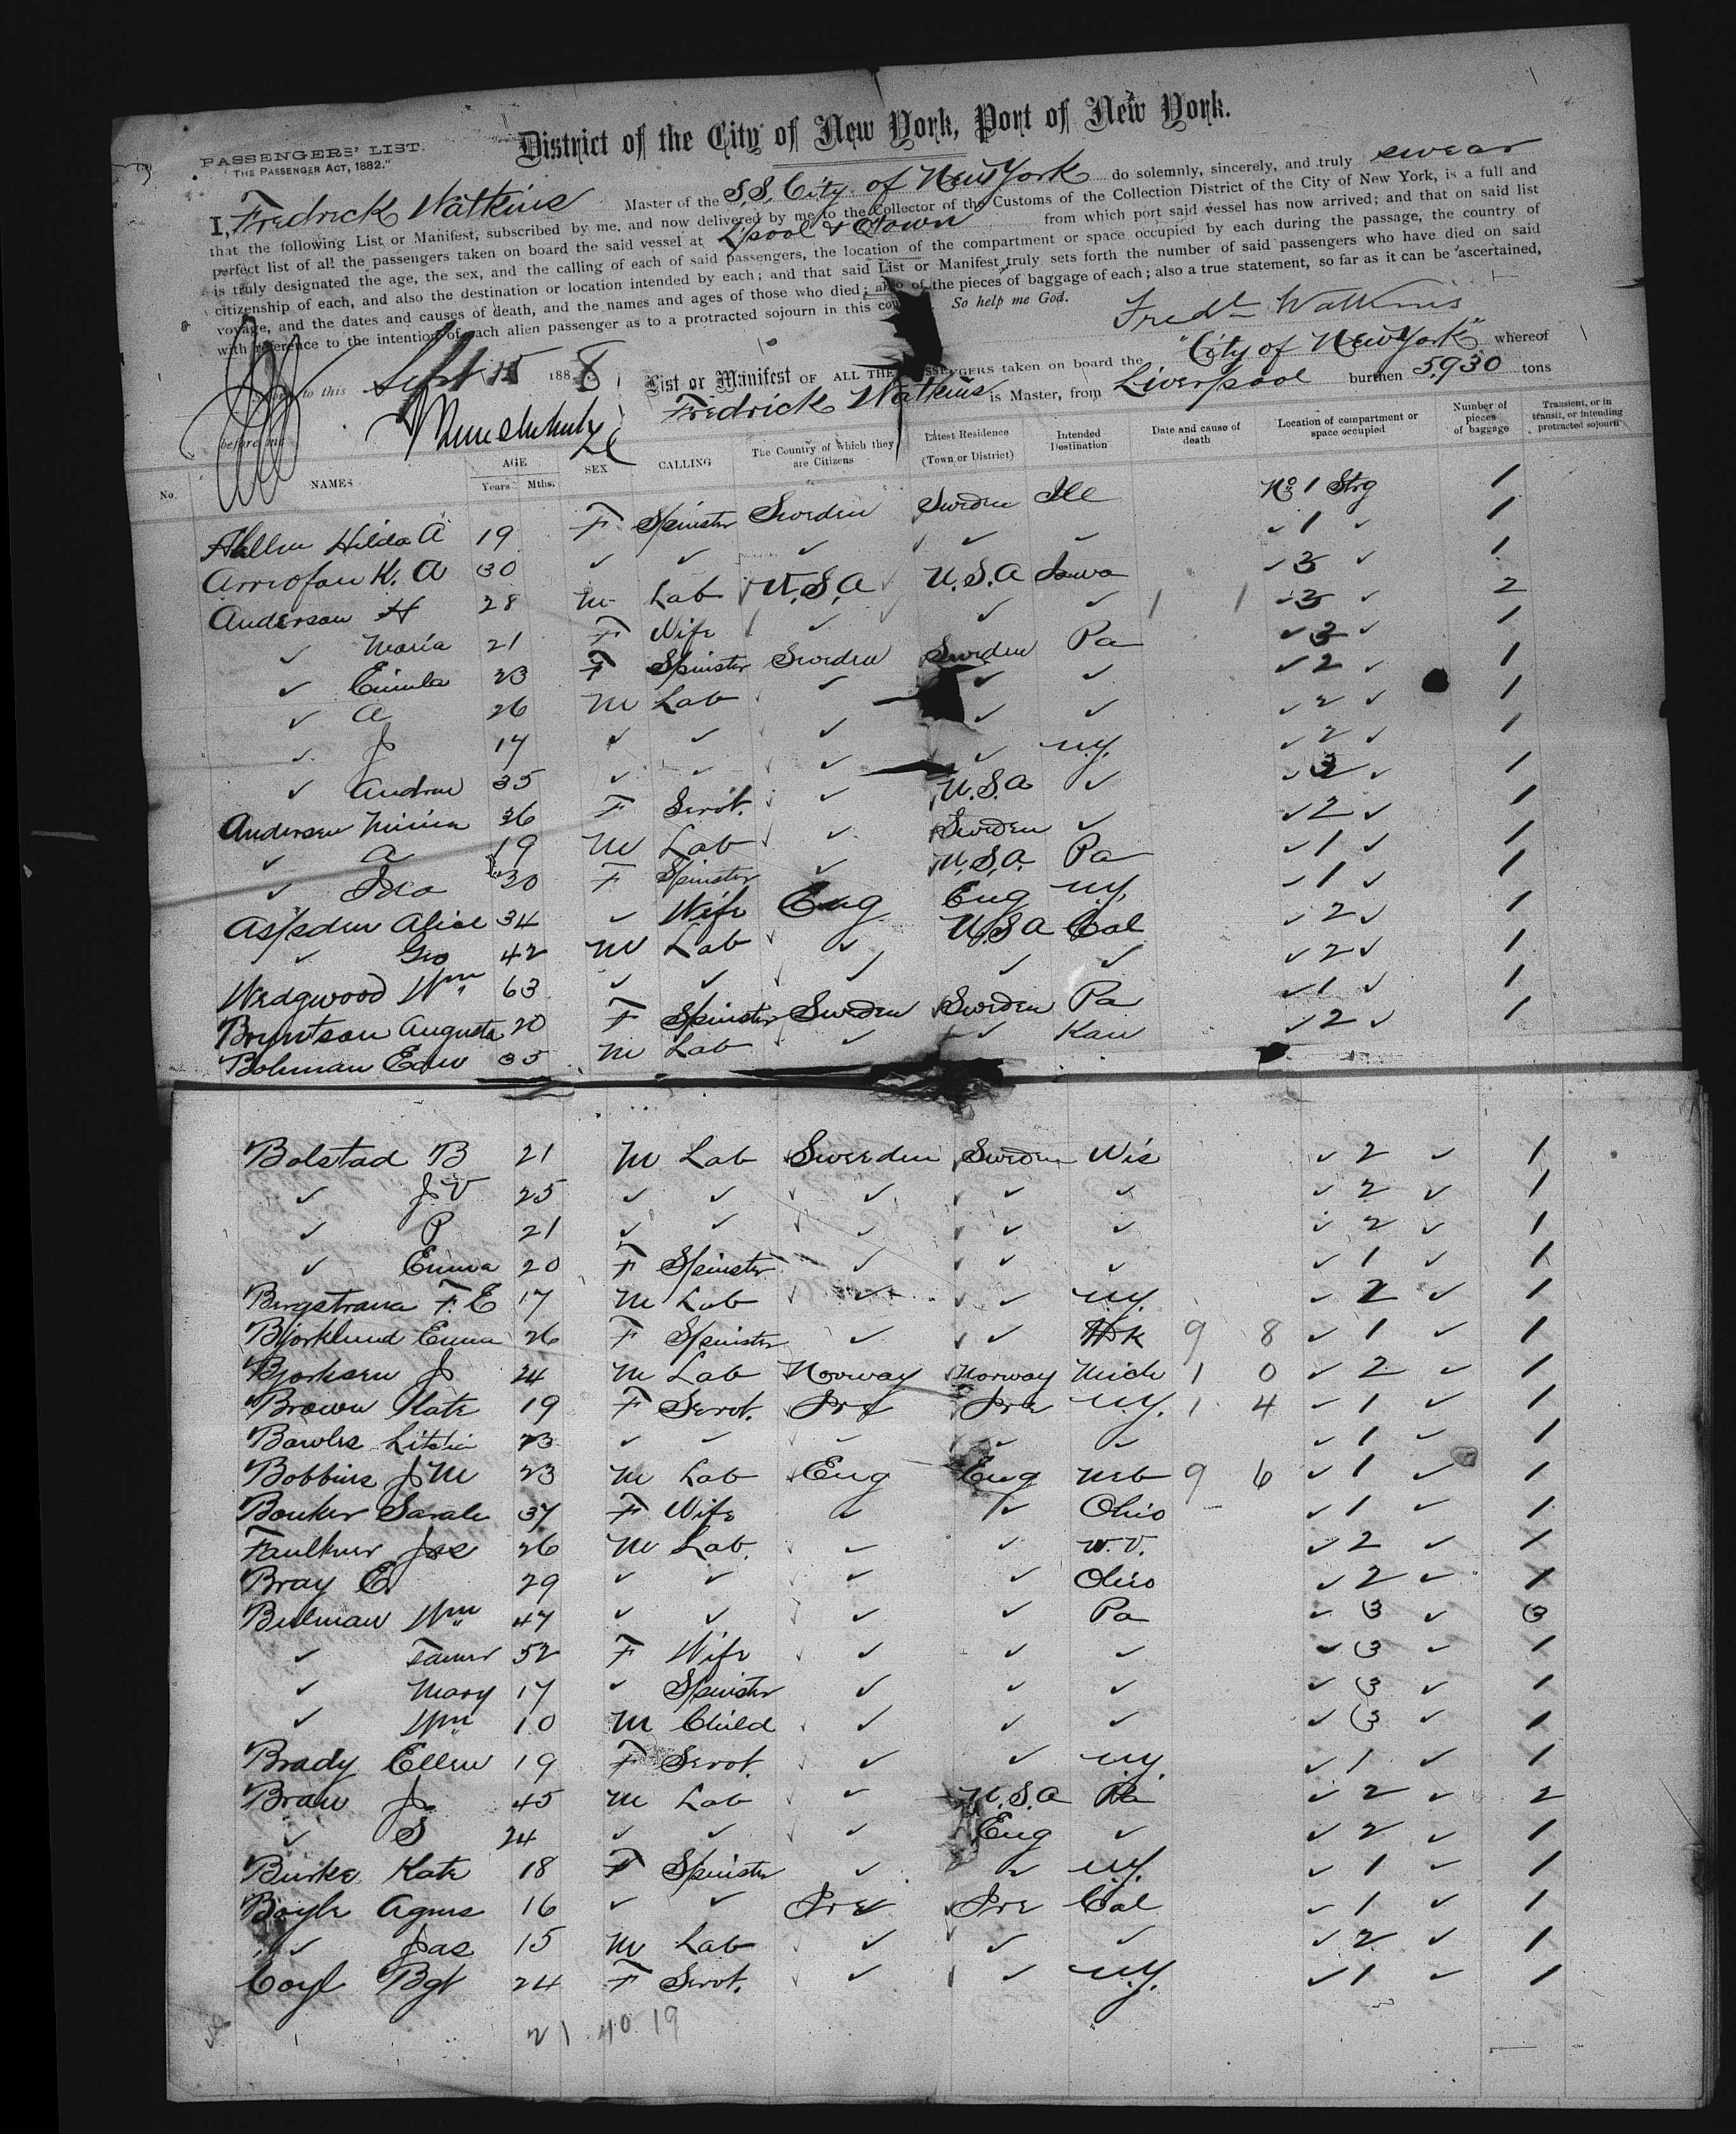 PASSENGERS' LIST.
"THE PASSENGER ACT, 1882."
District of the City of New York, Port of New York.
I, Fredrick Watkins Master of the S.S. City of New York do solemnly, sincerely, and truly swear
that the following List or Manifest, subscribed by me, and now delivered by me to the Collector of the Customs of the Collection District of the City of New York, is a full and
perfect list of all the passengers taken on board the said vessel at L'pool & Qtown from which port said vessel has now arrived; and that on said list
is truly designated the age, the sex, and the calling of each of said passengers, the location of the compartment or space occupied by each during the passage, the country of
citizenship of each, and also the destination or location intended by each; and that said List or Manifest truly sets forth the number of said passengers who have died on said
voyage, and the dates and causes of death, and the names and ages of those who died; also of the pieces of baggage of each; also a true statement, so far as it can be ascertained,
with reference to the intention of each alien passenger as to a protracted sojourn in this So help me God.
Fredk Watkins
to this Sept 15 1888
before me
List or Manifest OF ALL THE PASSENGERS taken on board the "City of New York" whereof
Fredrick Watkins is Master, from Liverpool burthen 5930 tons
No. NAMES AGE Years Mths. SEX CALLING The Country of which they are Citizens Latest Residence (Town or District) Intended Destination Date and cause of death Location of compartment or space occupied Number of pieces of baggage Transient, or in transit, or intending protracted sojourn
Hilda A 19 F Spinster Sweden Sweden Ill No 1 Strg 1
K. A 30 ✓ ✓ ✓ ✓ ✓ ✓ 1 ✓ 1
Anderson H 28 M Lab U.S.A U.S.A Iowa ✓ 3 ✓ 1
✓ Maria 21 F Wife ✓ ✓ ✓ 1 1 ✓ 3 ✓ 2
✓ 23 F Spinster Sweden Sweden Pa ✓ 3 ✓ 1
✓ A 26 M Lab ✓ ✓ ✓ ✓ 2 ✓ 1
✓ J 17 ✓ ✓ ✓ ✓ ✓ ✓ 2 ✓ 1
✓ Andrew 35 ✓ ✓ ✓ ✓ N.Y. ✓ 2 ✓ 1
Andersen Minna 36 F Servt. ✓ U.S.A ✓ ✓ 3 ✓ 1
✓ A 19 M Lab ✓ Sweden ✓ ✓ 2 ✓ 1
✓ Ida 30 F Spinster ✓ U.S.A. Pa ✓ 1 ✓ 1
Aspden Alice 34 ✓ Wife Eng Eng N.Y. ✓ 1 ✓ 1
✓ Geo 42 M Lab ✓ U.S.A Cal ✓ 2 ✓ 1
Wedgwood Wm 63 ✓ ✓ ✓ ✓ ✓ ✓ 2 ✓ 1
Bryntson Augusta 20 F Spinster Sweden Sweden Pa ✓ 1 ✓ 1
Bohman Edw 35 M Lab ✓ ✓ Kan ✓ 2 ✓ 1
Bolstad B 21 M Lab Sweeden Sweden Wis ✓ 2 ✓ 1
✓ J V 25 ✓ ✓ ✓ ✓ ✓ ✓ 2 ✓ 1
✓ P 21 ✓ ✓ ✓ ✓ ✓ ✓ 2 ✓ 1
✓ Emma 20 F Spinster ✓ ✓ ✓ ✓ 1 ✓ 1
F. E 17 M Lab ✓ ✓ N.Y. ✓ 2 ✓ 1
Bjorklund Emma 26 F Spinster ✓ ✓ 9 8 ✓ 1 ✓ 1
Bjorksen J 24 M Lab Norway Norway Mich 1 0 ✓ 2 ✓ 1
Brown Kate 19 F Servt. Ire Ire N.Y. 1 4 ✓ 1 ✓ 1
Bowles 23 ✓ ✓ ✓ ✓ ✓ ✓ 1 ✓ 1
Bobbins J M 23 M Lab Eng Eng Neb 9 6 ✓ 1 ✓ 1
Bouker Sarah 37 F Wife ✓ ✓ Ohio ✓ 1 ✓ 1
Faulkner Jas 26 M Lab. ✓ ✓ W.V. ✓ 2 ✓ 1
Bray E 29 ✓ ✓ ✓ ✓ Ohio ✓ 2 ✓ 1
Bulman Wm 47 ✓ ✓ ✓ ✓ Pa ✓ 3 ✓ 3
✓ 52 F Wife ✓ ✓ ✓ ✓ 3 ✓ 1
✓ Mary 17 ✓ Spinster ✓ ✓ ✓ ✓ 3 ✓ 1
✓ Wm 10 M Child ✓ ✓ ✓ ✓ 3 ✓ 1
Brady Ellen 19 F Servt. ✓ ✓ N.Y. ✓ 1 ✓ 1
Braw J 45 M Lab ✓ U.S.A Pa ✓ 2 ✓ 2
✓ S 24 ✓ ✓ ✓ Eng ✓ ✓ 2 ✓ 1
Burke Kate 18 F Spinster ✓ ✓ N.Y. ✓ 1 ✓ 1
Boyle Agnes 16 ✓ ✓ Ire Ire Cal ✓ 1 ✓ 1
✓ Jas 15 M Lab ✓ ✓ ✓ ✓ 2 ✓ 1
Coyl Bgt 24 F Servt. ✓ ✓ N.Y. ✓ 1 ✓ 1
21 40 19